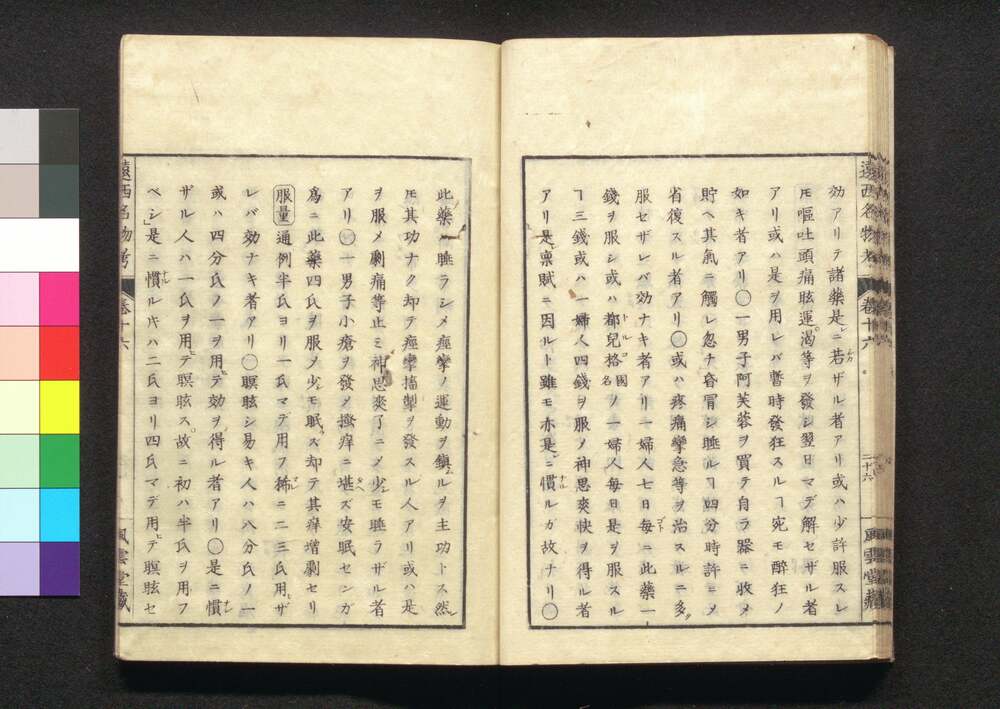 遠西名物考 卷十六 二十六 風雲堂藏
効アリテ諸藥是ニ若ザル者アリ或ハ少許服スレ
𪜈嘔吐頭痛眩運渇等ヲ發シ翌日マデ解セザル者
アリ或ハ是ヲ用レバ暫時發狂スルヿ宛モ醉狂ノ
如キ者アリ〇一男子阿芙蓉ヲ買テ自ラ器ニ收メ
貯ヘ其氣ニ觸レ忽チ昏冒シ睡ルヿ四分時許ニメ
省復スル者アリ〇或ハ疼痛攣急等ヲ治スルニ多
服セザレバ効ナキ者アリ一婦人七日毎ニ此藥一
錢ヲ服シ或ハ都兒格國名ノ一婦人毎日是ヲ服スル
ヿ三錢或ハ一婦人四錢ヲ服メ神思爽快ヲ得ル者
アリ是稟賦ニ因ルト雖モ亦是ニ慣ルガ故ナリ〇
此藥ハ睡ラシメ痙攣ノ運動ヲ鎭ルヲ主功トス然
𪜈其功ナク却テ痙攣搐掣ヲ發スル人アリ或ハ是
ヲ服メ劇痛等止ミ神思爽了ニメ少モ睡ラザル者
アリ〇一男子小瘡ヲ發メ搔痒ニ堪ズ安眠センガ
爲ニ此藥四氏ヲ服メ少モ眠ズ却テ其痒增劇セリ
服量通例半氏ヨリ一氏マデ用フ稀ニ二三氏用ザ
レバ効ナキ者アリ〇瞑眩シ易キ人ハ八分氏ノ一
或ハ四分氏ノ一ヲ用テ効ヲ得ル者アリ〇是ニ慣
ザル人ハ一氏ヲ用テ瞑眩ス故ニ初ハ半氏ヲ用フ
ベシ是ニ慣ル𬼀ハ二氏ヨリ四氏マデ用テ瞑眩セ
遠西名物考 卷十六 風雲堂藏